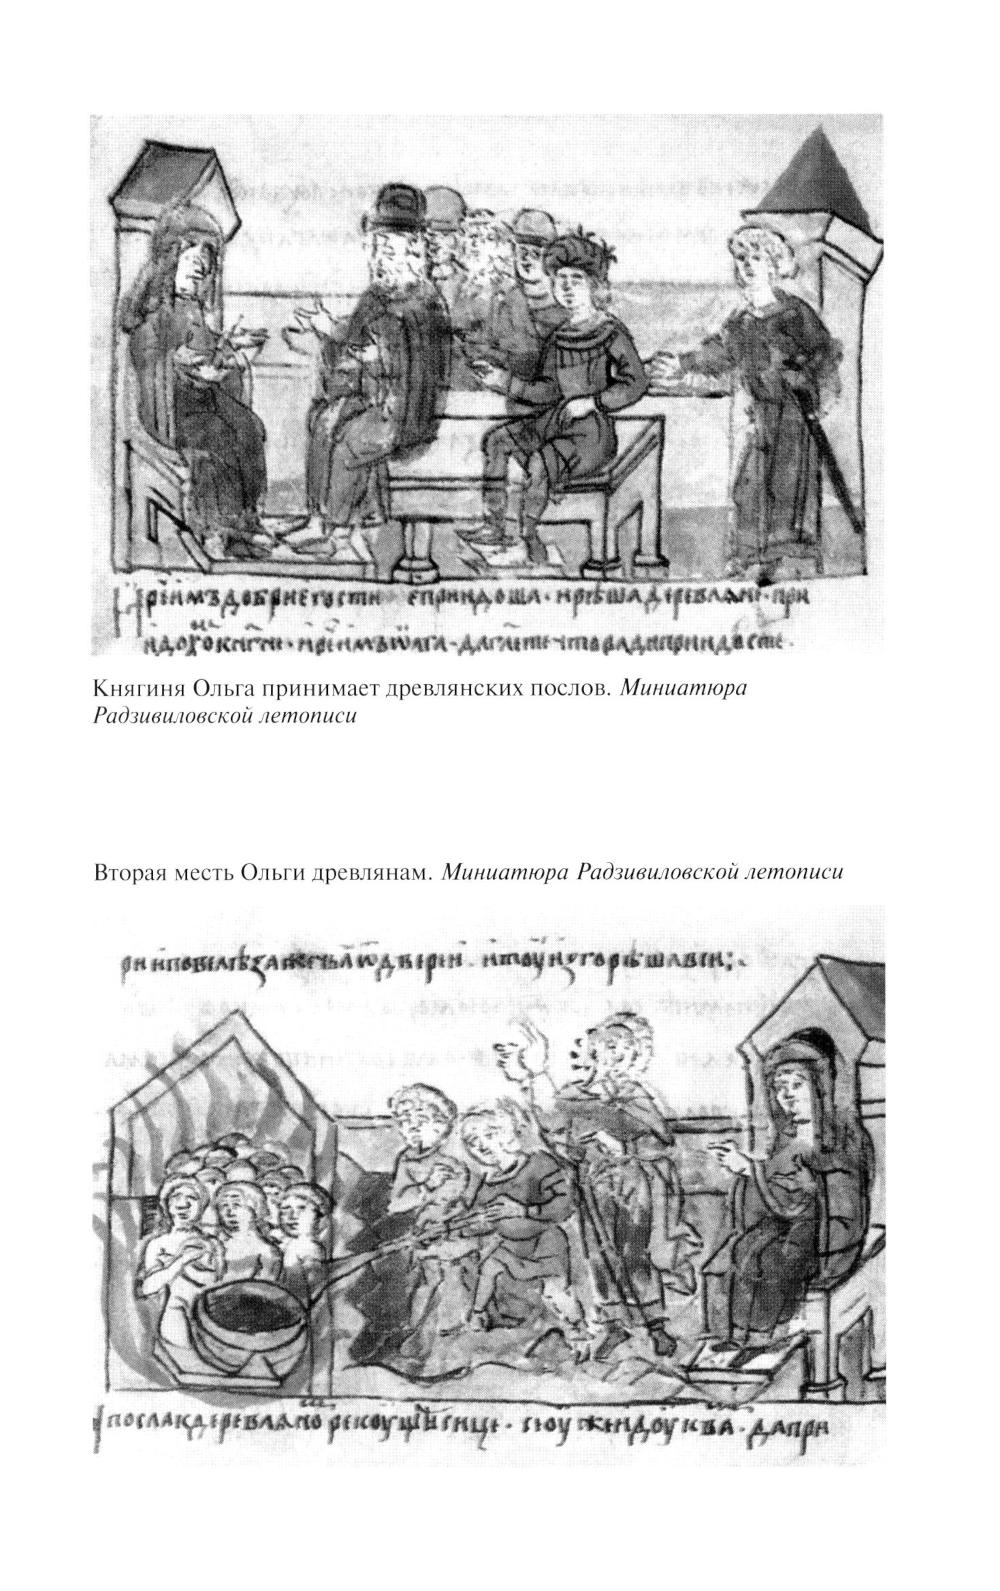 реимъ добри гости е приидоша · и рѣша деревлѧне · при
идохо кнѧгине · и реимъ ѡлга · да глте что ради приидосте ·
Княгиня Ольга принимает древлянских послов. Миниатюра
Радзивиловской летописи
Вторая месть Ольги древлянам. Миниатюра Радзивиловской летописи
ри и повелѣ зажечи ѧ ѿ двери · и тоу изгорѣша вси :·
послак деревлѧно рекоущи сице · сеоу же идоу к вам · да при